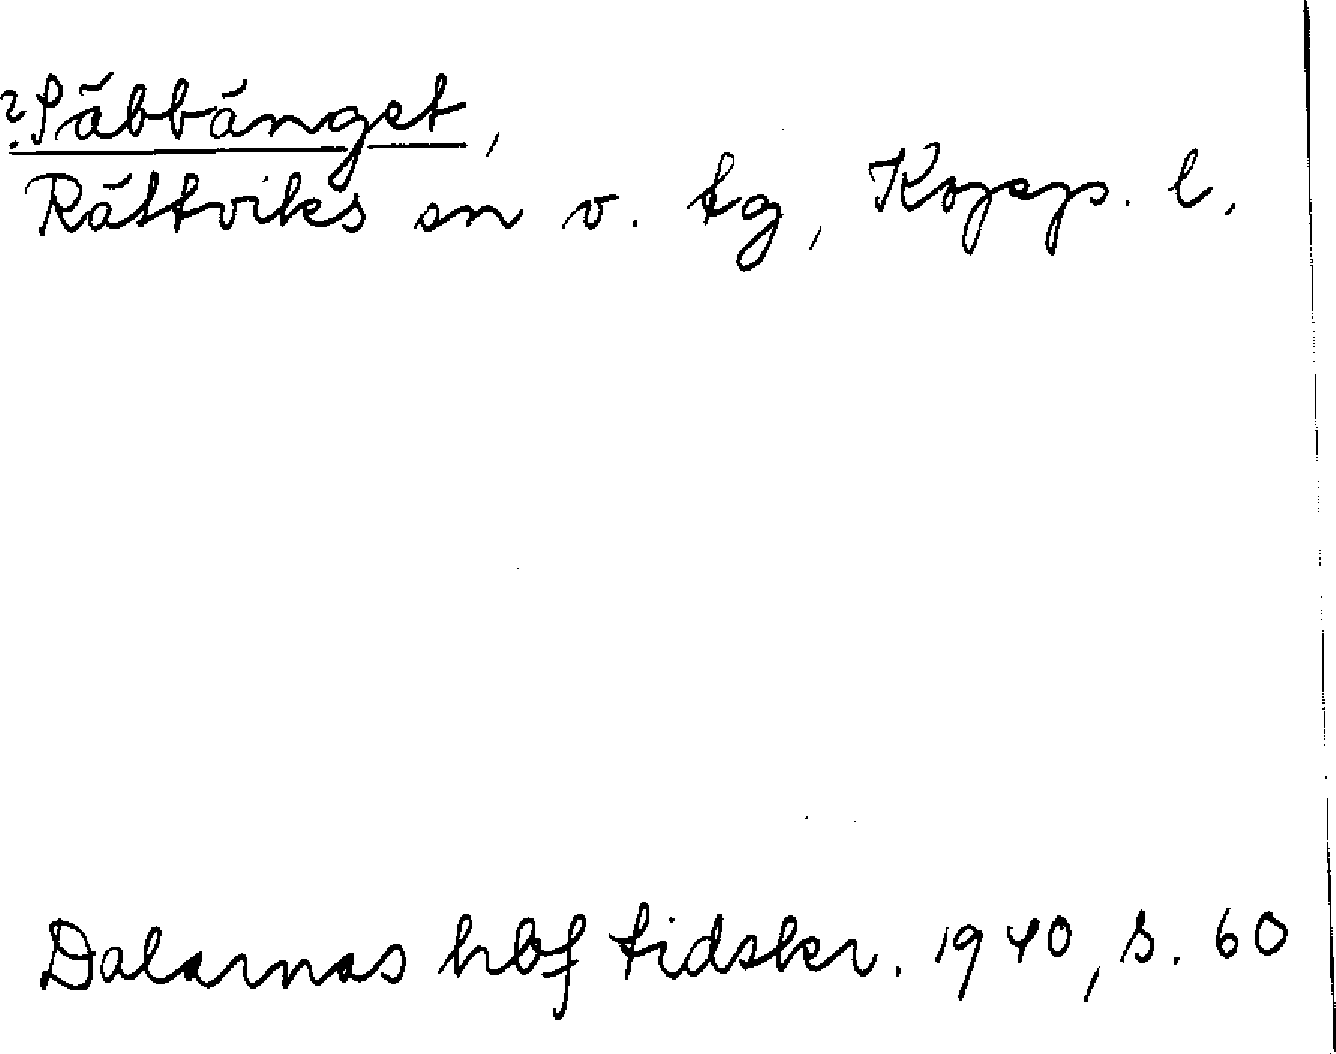 ? Säbbänget,
Rättviks sn v. tg, Kopp. l.
Dalarnas hbf tidskr. 1940, s. 60